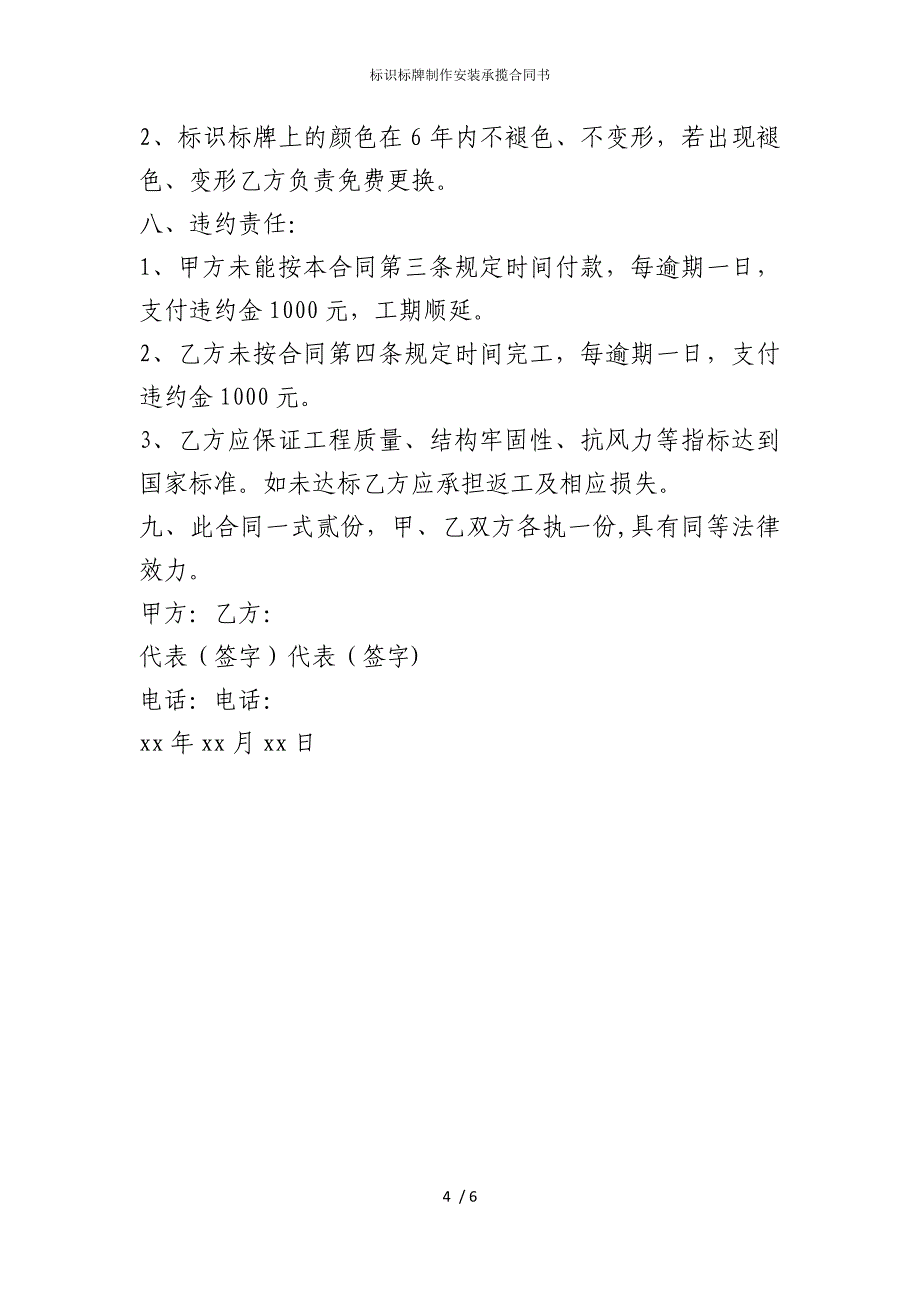 标识标牌制作安装承揽合同书
2、标识标牌上的颜色在 6 年内不褪色、不变形，若出现褪
色、变形乙方负责免费更换。
八、违约责任：
1、甲方未能按本合同第三条规定时间付款，每逾期一日，
支付违约金 1000 元，工期顺延。
2、乙方未按合同第四条规定时间完工，每逾期一日，支付
违约金 1000 元。
3、乙方应保证工程质量、结构牢固性、抗风力等指标达到
国家标准。如未达标乙方应承担返工及相应损失。
九、此合同一式贰份，甲、乙双方各执一份,具有同等法律
效力。
甲方： 乙方：
代表（签字）代表（签字)
电话： 电话：
xx 年 xx 月 xx 日
4 / 6